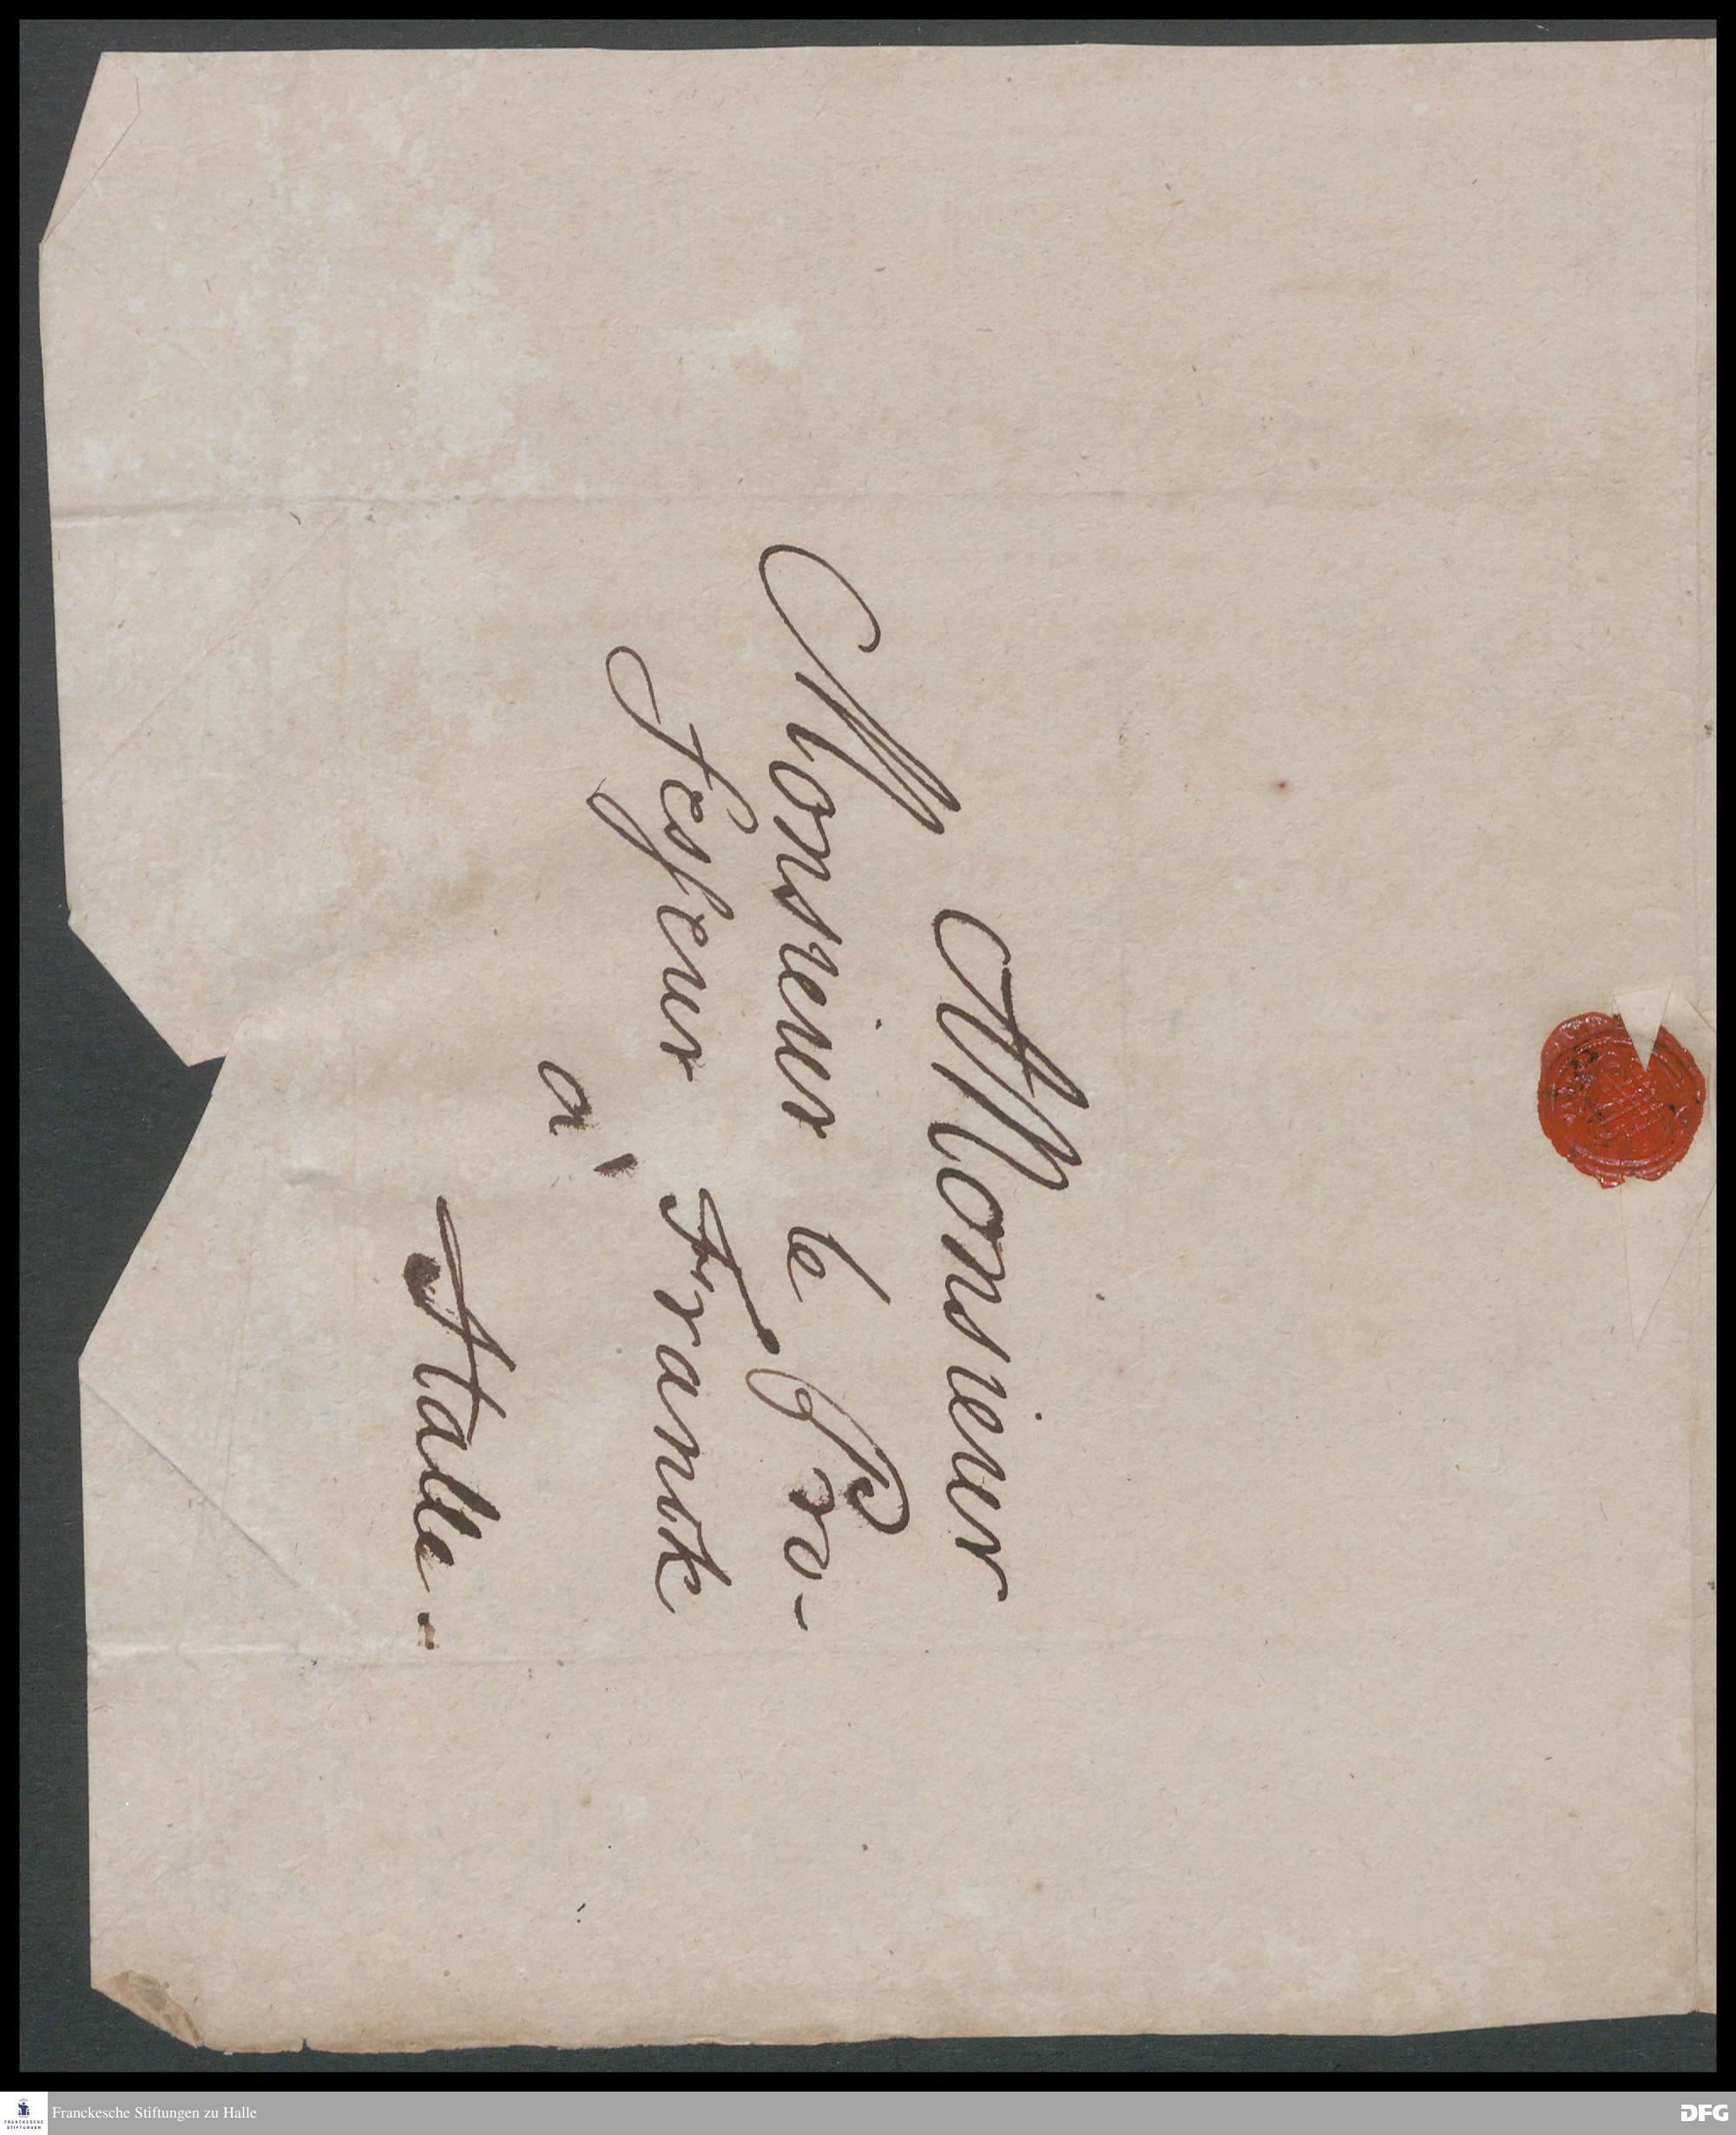 A Monsieur
Monsieur le Pro-
fesseur Franck
à
Halle.
Franckesche Stiftungen zu Halle
FRANCKESCHE
STIFTUNGEN
DFG